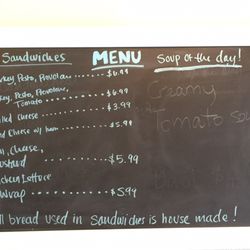 Sandwiches
MENU
Soup of the day!
key, Pesto, Provolone $6.99
key, Pesto, Provolone,
Tomato $6.99
led cheese $3.99
ed cheese w/ ham $5.99
m, cheese,
ustard $5.99
icken Lettuce
Wrap $5.99
Creamy
Tomato sou
ll bread used in sandwiches is house made!